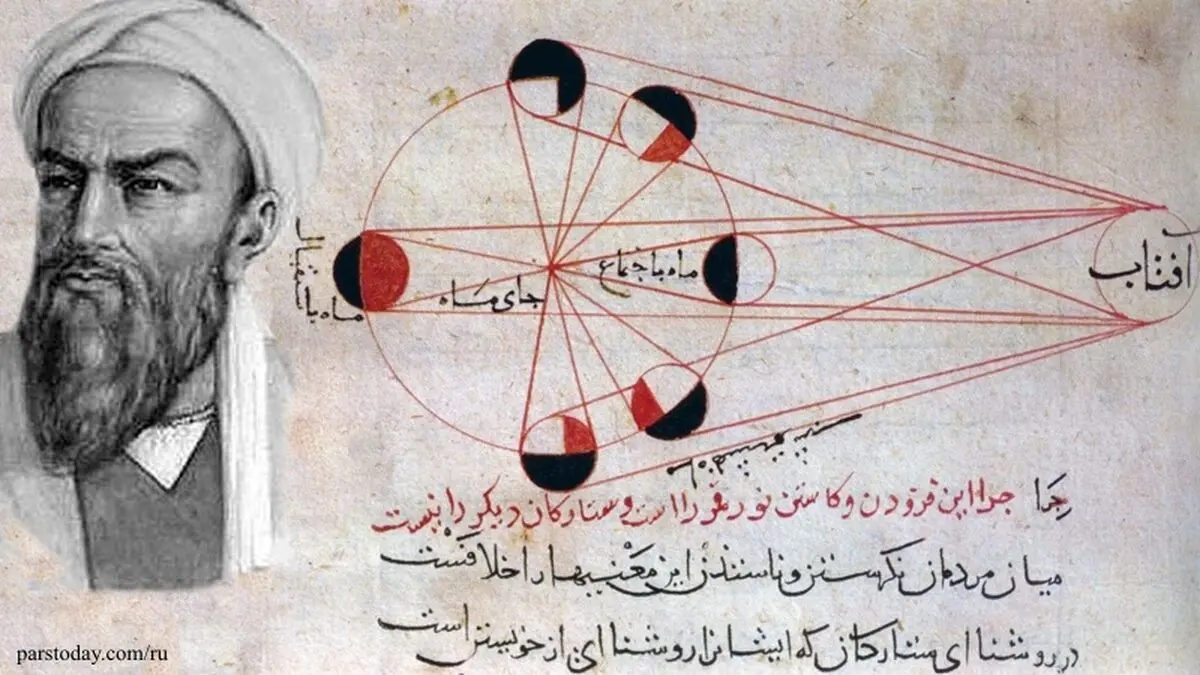 افتاب
ماه باجتماع
جای ماه
ماه باستقبال
چرا چرا این فزودن و کاستن نور قمر را است و ستارکان دیکر را نیست
میان مردمان نکرستن و این معنیها را اختلافست
در روشنا ای ستارکان که ایشانرا روشنا ای از خویشتن است
parstoday.com/ru